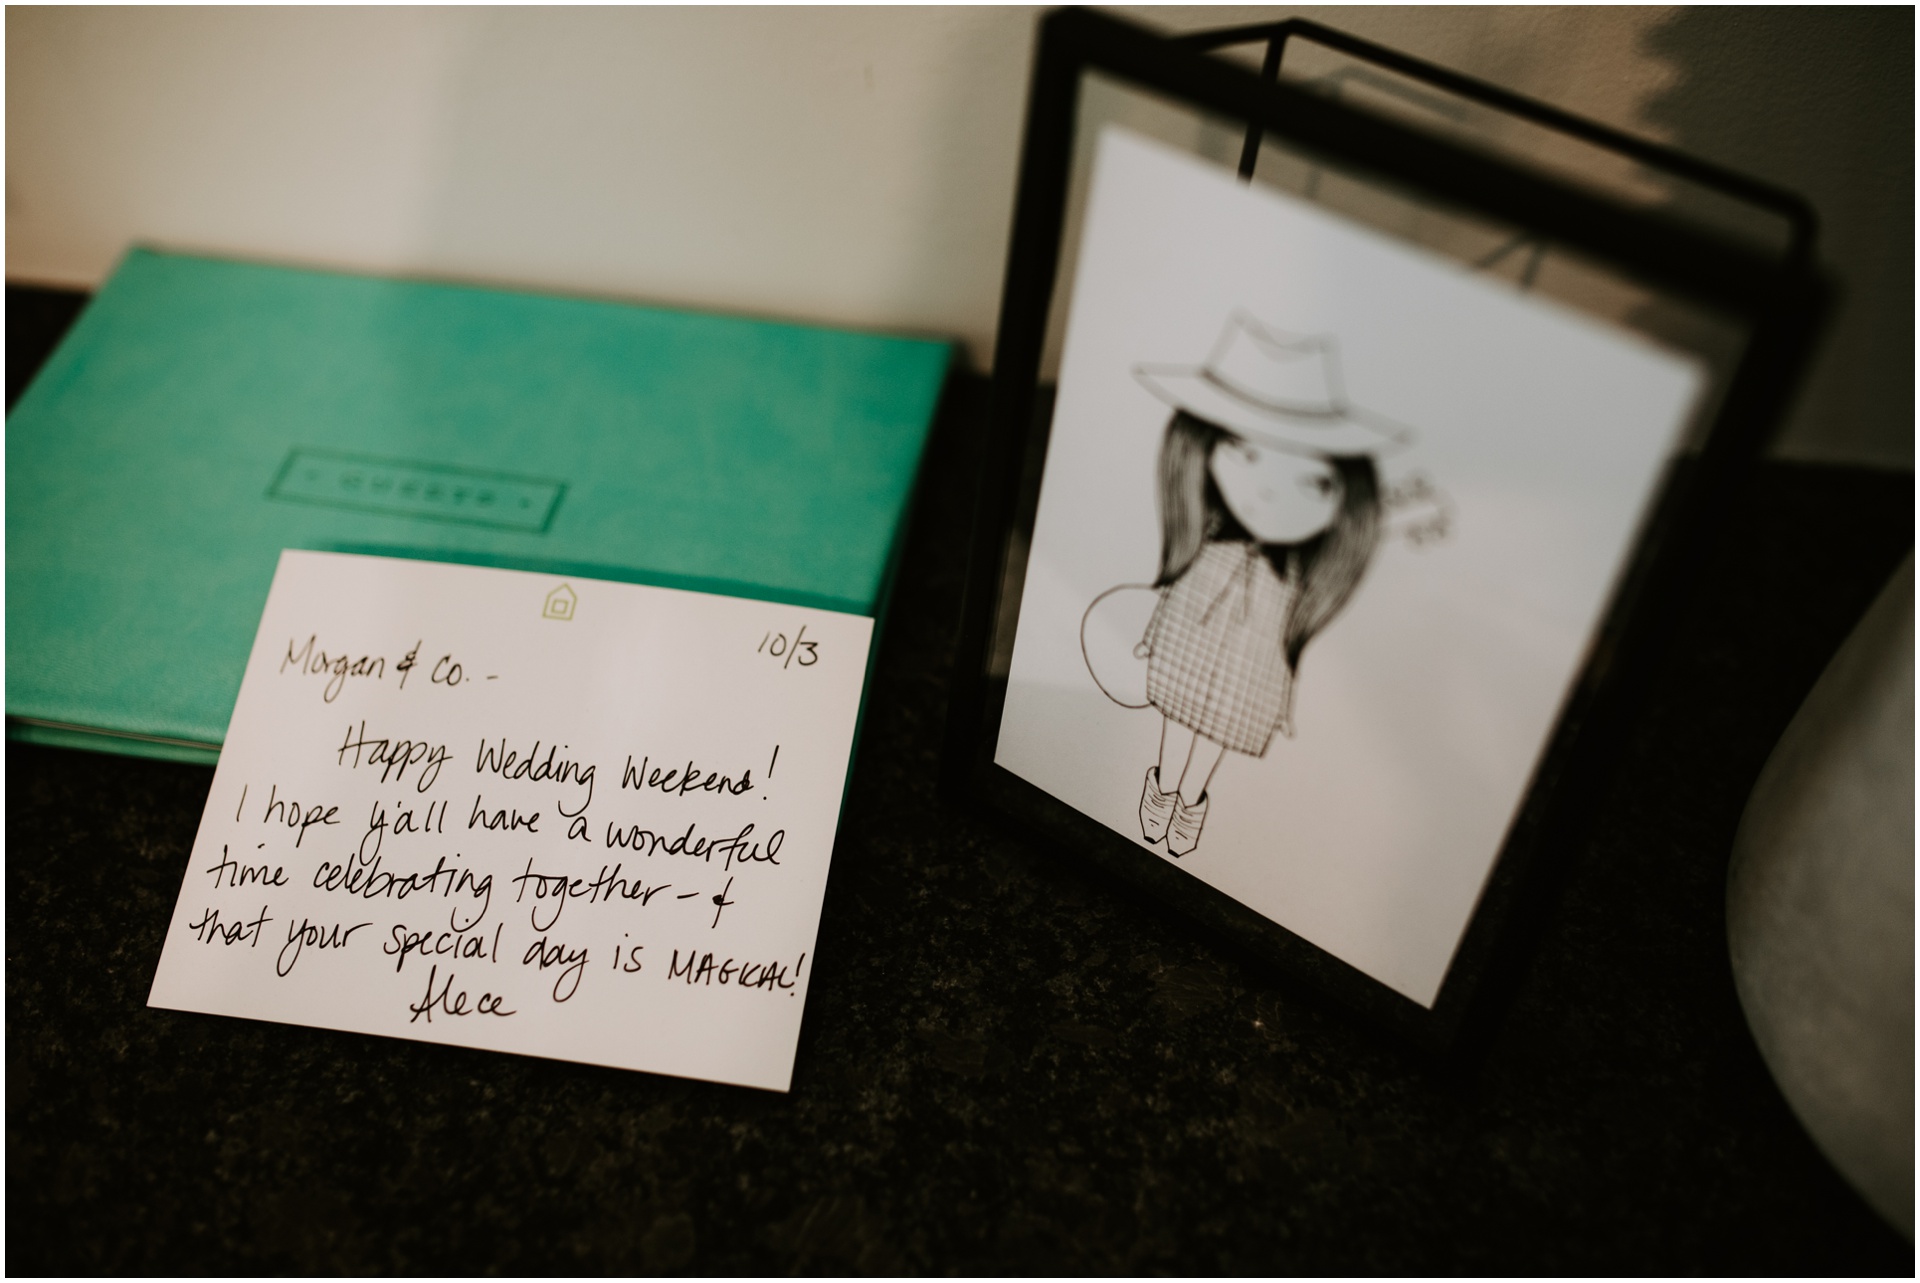 GUESTS
10/3
Morgan & Co. -
Happy Wedding Weekend!
I hope y'all have a wonderful
time celebrating together - &
that your special day is MAGICAL!
Alece